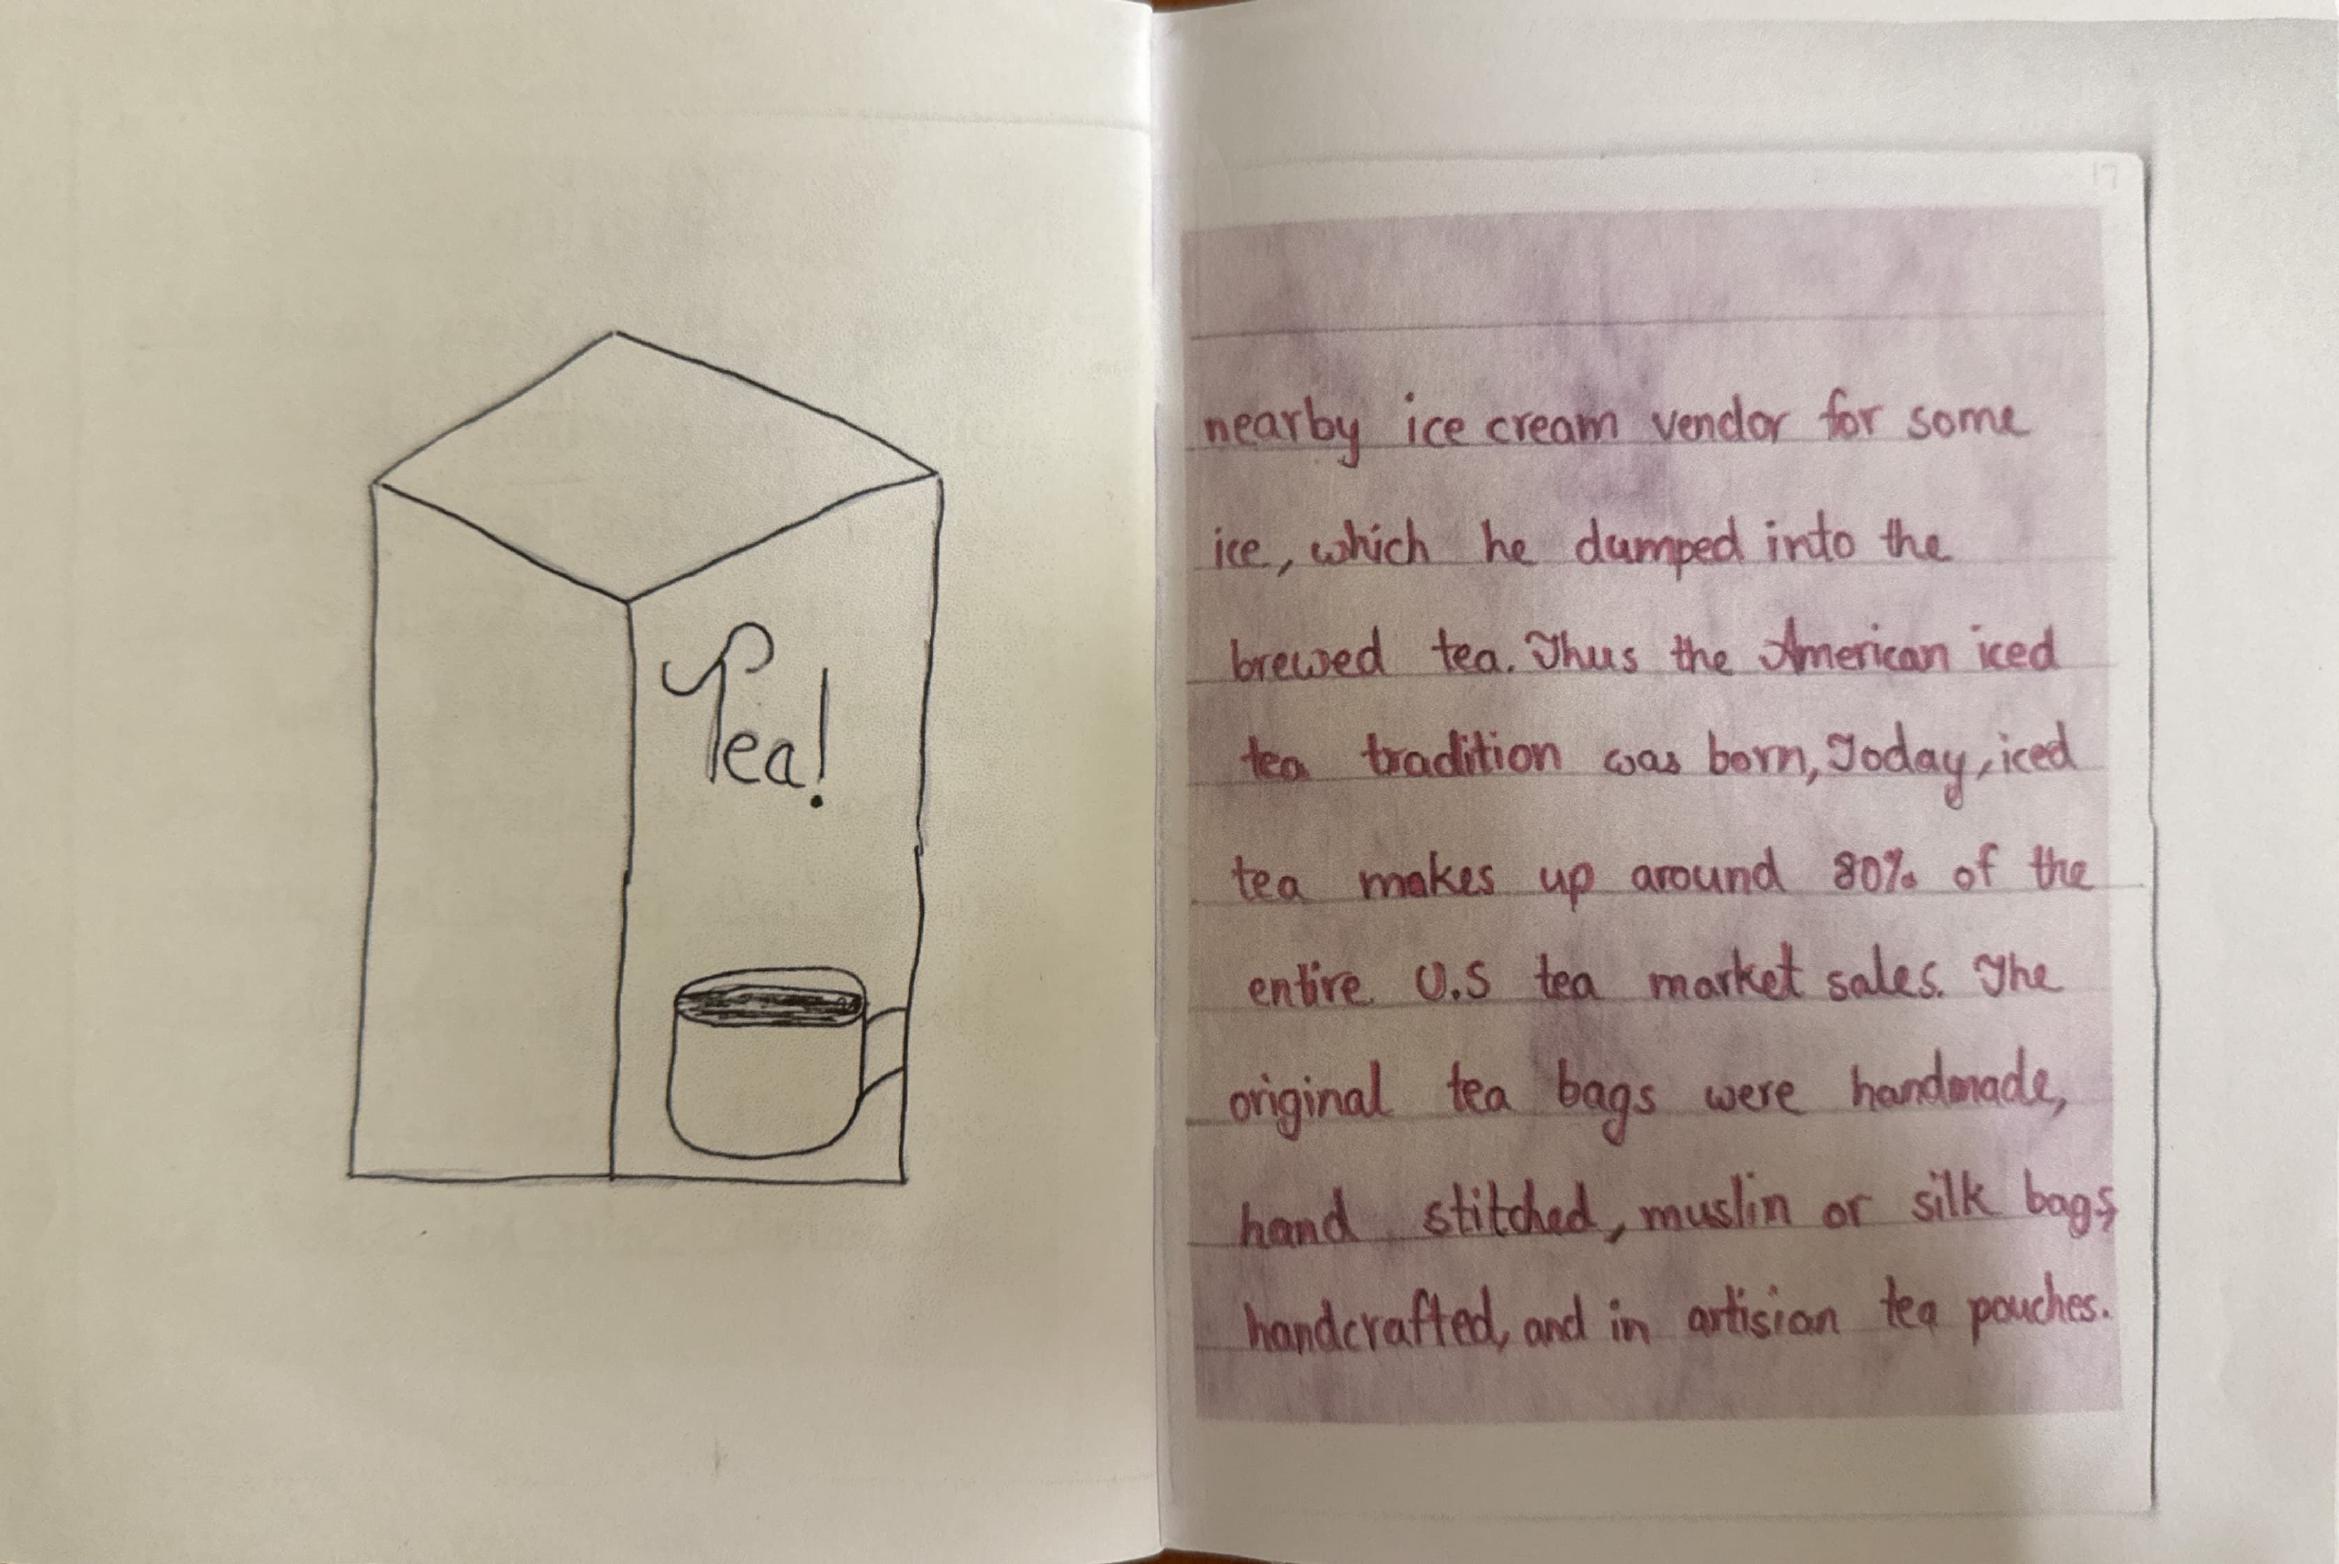 Tea!
17
nearby ice cream vendor for some
ice, which he dumped into the
brewed tea. Thus the American iced
tea tradition was born, Today, iced
tea makes up around 80% of the
entire U.S tea market sales. The
original tea bags were handmade,
hand stitched, muslin or silk bags,
handcrafted, and in artisian tea pouches.